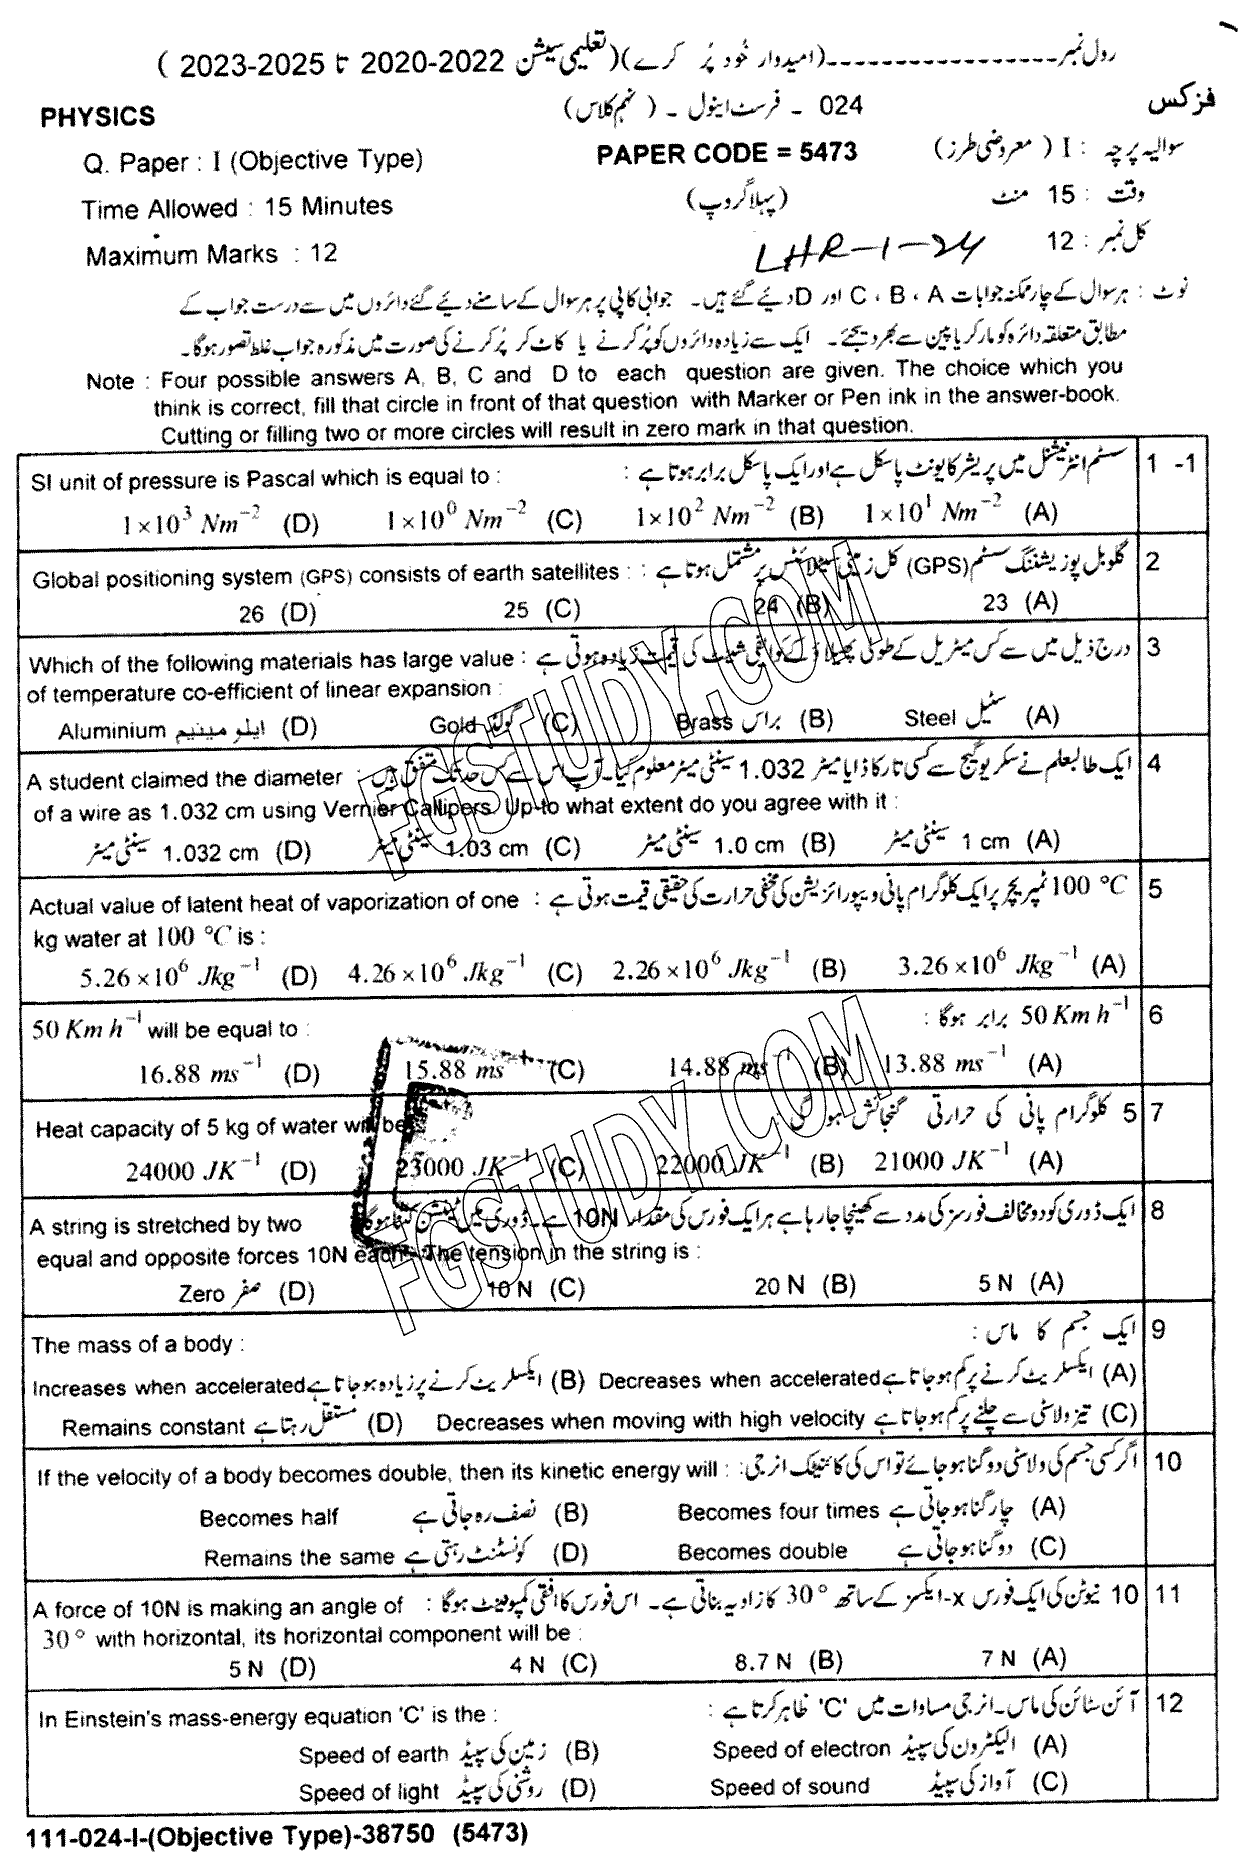 رول نمبر-----------------(امیدوار خُود پُر کرے)(تعلیمی سیشن 2022-2020 تا 2025-2023 )
PHYSICS 024 - فرسٹ اینول - ( نہم کلاس) فزکس
Q. Paper : I (Objective Type) PAPER CODE = 5473 سوالیہ پرچہ : I ( معروضی طرز)
Time Allowed : 15 Minutes (پہلا گروپ) وقت : 15 منٹ
Maximum Marks : 12 LHR-1-24 کل نمبر : 12
نوٹ : ہر سوال کے چار ممکنہ جوابات A ، B ، C اور D دیئے گئے ہیں۔ جوابی کاپی پر ہر سوال کے سامنے دیئے گئے دائروں میں سے درست جواب کے
مطابق متعلقہ دائرہ کو مارکر یا پین سے بھر دیجئے۔ ایک سے زیادہ دائروں کو پُر کرنے یا کاٹ کر پُر کرنے کی صورت میں مذکورہ جواب غلط تصور ہوگا۔
Note : Four possible answers A, B, C and D to each question are given. The choice which you
think is correct, fill that circle in front of that question with Marker or Pen ink in the answer-book.
Cutting or filling two or more circles will result in zero mark in that question.
1 -1 سسٹم انٹرنیشنل میں پریشر کا یونٹ پاسکل ہے اور ایک پاسکل برابر ہوتا ہے :
SI unit of pressure is Pascal which is equal to :
1×10³ Nm⁻² (D) 1×10⁰ Nm⁻² (C) 1×10² Nm⁻² (B) 1×10¹ Nm⁻² (A)
2 گلوبل پوزیشننگ سسٹم (GPS) کل زمینی سیٹلائٹس پر مشتمل ہوتا ہے :
Global positioning system (GPS) consists of earth satellites :
26 (D) 25 (C) 24 (B) 23 (A)
3 درج ذیل میں سے کس میٹریل کے طولی پھیلاؤ کے کوایفی شینٹ کی قیمت زیادہ ہوتی ہے :
Which of the following materials has large value :
of temperature co-efficient of linear expansion :
Aluminium ایلومینیم (D) Gold گولڈ (C) Brass براس (B) Steel سٹیل (A)
4 ایک طالبعلم نے سکریو گیج سے کسی تار کا ڈایا میٹر 1.032 سینٹی میٹر معلوم کیا۔ آپ اس سے کس حد تک متفق ہیں :
A student claimed the diameter
of a wire as 1.032 cm using Vernier Callipers. Up-to what extent do you agree with it :
سینٹی میٹر 1.032 cm (D) سینٹی میٹر 1.03 cm (C) سینٹی میٹر 1.0 cm (B) سینٹی میٹر 1 cm (A)
5 100 °C ٹمپریچر پر ایک کلوگرام پانی ویپورائزیشن کی مخفی حرارت کی حقیقی قیمت ہوتی ہے :
Actual value of latent heat of vaporization of one
kg water at 100 °C is :
5.26×10⁶ Jkg⁻¹ (D) 4.26×10⁶ Jkg⁻¹ (C) 2.26×10⁶ Jkg⁻¹ (B) 3.26×10⁶ Jkg⁻¹ (A)
6 50 Km h⁻¹ برابر ہوگا :
50 Km h⁻¹ will be equal to :
16.88 ms⁻¹ (D) 15.88 ms⁻¹ (C) 14.88 ms⁻¹ (B) 13.88 ms⁻¹ (A)
7 5 کلوگرام پانی کی حرارتی گنجائش ہو گی :
Heat capacity of 5 kg of water will be
24000 JK⁻¹ (D) 23000 JK⁻¹ (C) 22000 JK⁻¹ (B) 21000 JK⁻¹ (A)
8 ایک ڈوری کو دو مخالف فورسز کی مدد سے کھینچا جا رہا ہے ہر ایک فورس کی مقدار 10N ہے۔ ڈوری میں ٹینشن کتنا ہوگا
A string is stretched by two
equal and opposite forces 10N each. The tension in the string is :
Zero صفر (D) 10 N (C) 20 N (B) 5 N (A)
9 ایک جسم کا ماس :
The mass of a body :
Increases when accelerated ایکسلریٹ کرنے پر زیادہ ہو جاتا ہے (B) Decreases when accelerated ایکسلریٹ کرنے پر کم ہو جاتا ہے (A)
Remains constant مستقل رہتا ہے (D) Decreases when moving with high velocity تیز ولاسٹی سے چلنے پر کم ہو جاتا ہے (C)
10 اگر کسی جسم کی ولاسٹی دوگنا ہو جائے تو اس کی کائنیٹک انرجی :
If the velocity of a body becomes double, then its kinetic energy will :
Becomes half نصف رہ جاتی ہے (B) Becomes four times چار گنا ہو جاتی ہے (A)
Remains the same کونسٹنٹ رہتی ہے (D) Becomes double دوگنا ہو جاتی ہے (C)
11 10 نیوٹن کی ایک فورس x-ایکسز کے ساتھ 30° کا زاویہ بناتی ہے۔ اس فورس کا افقی کمپوننٹ ہوگا :
A force of 10N is making an angle of
30° with horizontal, its horizontal component will be :
5 N (D) 4 N (C) 8.7 N (B) 7 N (A)
12 آئن سٹائن کی ماس۔انرجی مساوات میں 'C' ظاہر کرتا ہے :
In Einstein's mass-energy equation 'C' is the :
Speed of earth زمین کی سپیڈ (B) Speed of electron الیکٹرون کی سپیڈ (A)
Speed of light روشنی کی سپیڈ (D) Speed of sound آواز کی سپیڈ (C)
111-024-I-(Objective Type)-38750 (5473)
FGSTUDY.COM
FGSTUDY.COM